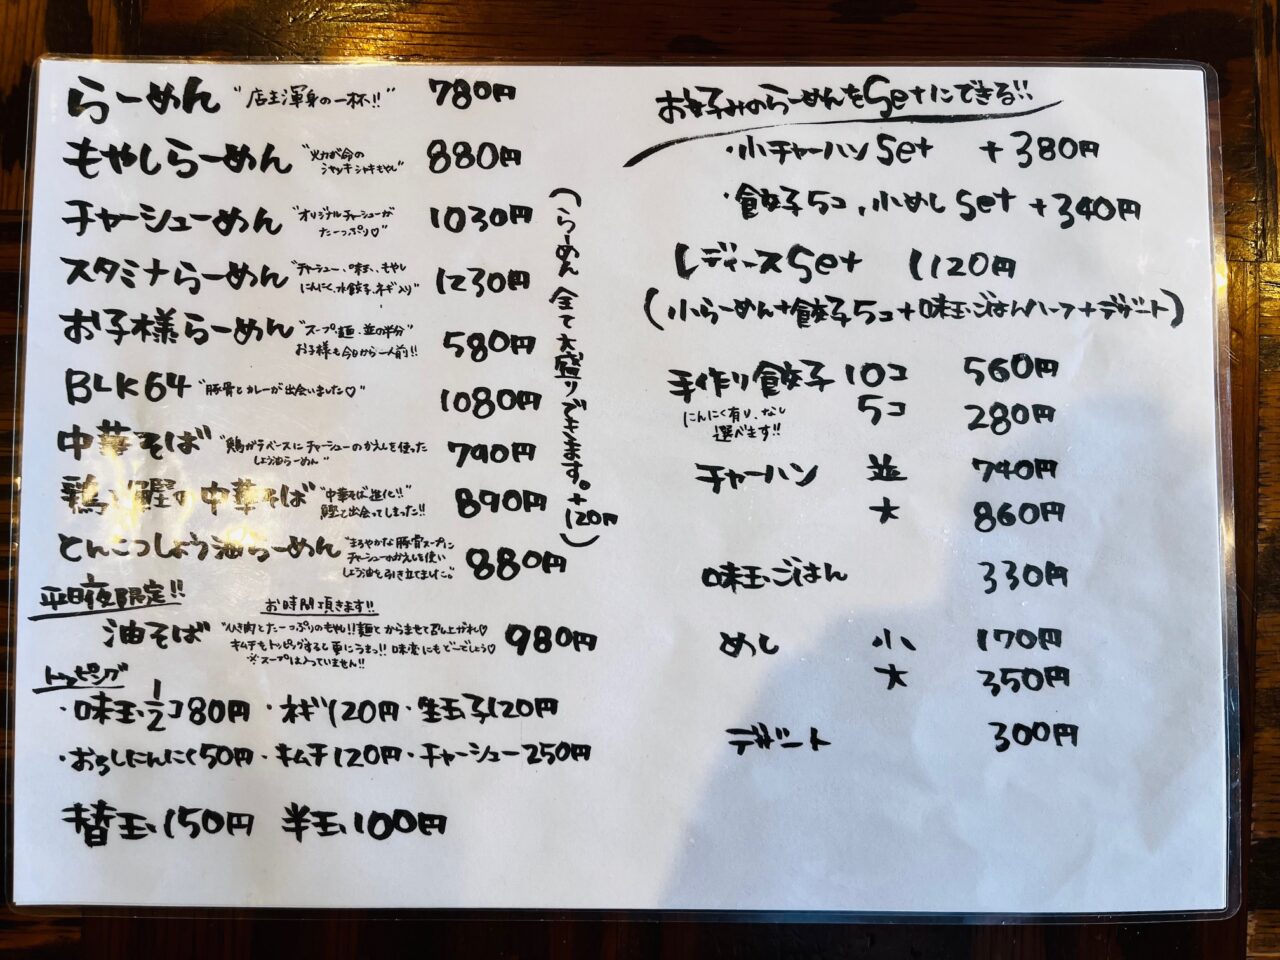 らーめん "店主渾身の一杯!!" 780円
もやしらーめん "火力が命の
シャッキシャキもやし" 880円
チャーシューめん "オリジナルチャーシューが
たーっぷり♡" 1030円
スタミナらーめん "チャーシュー、味玉、もやし
にんにく、水餃子、ネギ入り" 1230円
お子様らーめん "スープ・麺・並の半分"
お子様も今日から一人前!! 580円
BLK64 "豚骨とカレーが出会いました♡" 1080円
中華そば "鶏ガラベースにチャーシューのかえしを使った
しょう油らーめん" 790円
鶏と鰹の中華そば "中華そば進化!!"
鰹と出会ってしまった!! 890円
とんこつしょう油らーめん "まろやかな豚骨スープに
チャーシューのかえしを使い
しょう油を引き立てました。" 880円
(らーめん全て大盛りできます。+120円)
平日夜限定!!
お時間頂きます!!
油そば "ひき肉とたーっぷりのもやし!!麺とからませて召し上がれ♡
キムチをトッピングすると更にうまっ!! 味変にもどーでしょう♡
※スープは入っていません!! 980円
トッピング
・味玉1/2コ80円・ネギ120円・生玉子120円
・おろしにんにく50円・キムチ120円・チャーシュー250円
替玉150円 半玉100円
お好みのらーめんをSetにできる!!
・小チャーハンSet +380円
・餃子5コ、小めしSet +340円
レディースSet 1120円
(小らーめん+餃子5コ+味玉ごはんハーフ+デザート)
手作り餃子 10コ 560円
にんにく有り、なし
選べます!! 5コ 280円
チャーハン 並 740円
大 860円
味玉ごはん 330円
めし 小 170円
大 350円
デザート 300円